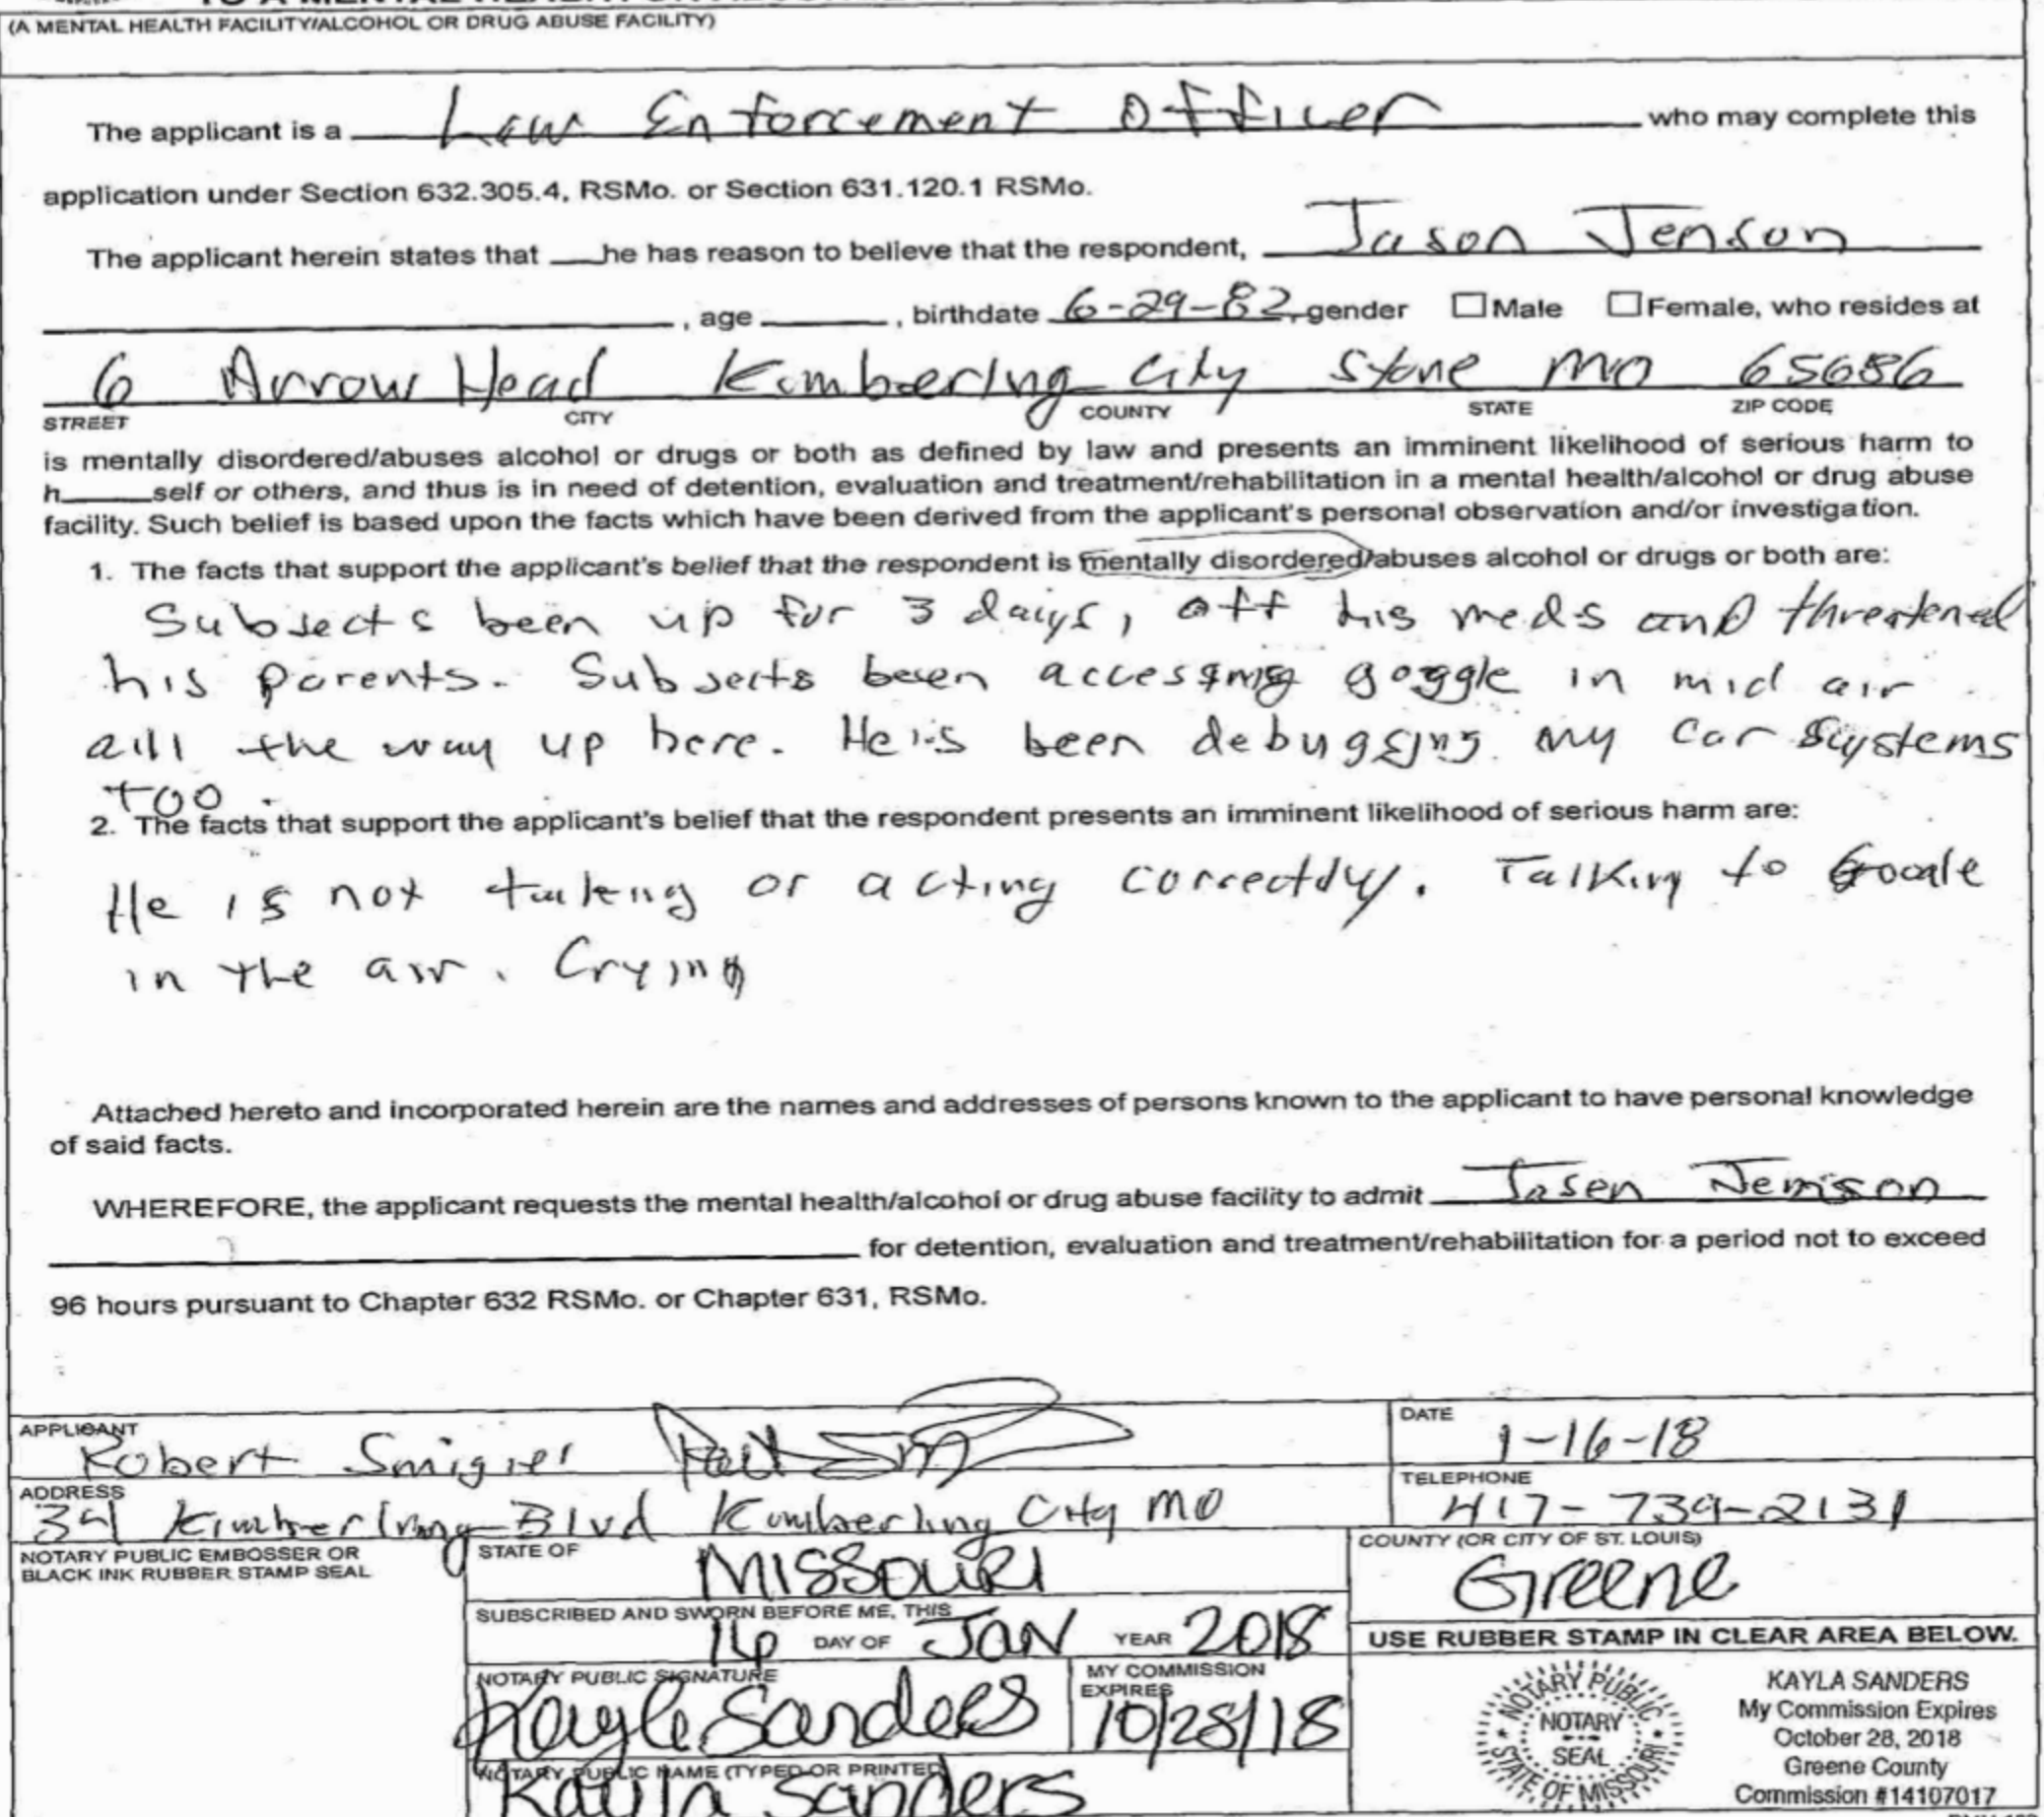 (A MENTAL HEALTH FACILITY/ALCOHOL OR DRUG ABUSE FACILITY)
The applicant is a Law Enforcement Officer who may complete this
application under Section 632.305.4, RSMo. or Section 631.120.1 RSMo.
The applicant herein states that ___he has reason to believe that the respondent, Jason Jenson
, age ______, birthdate 6-29-82, gender ☐ Male ☐ Female, who resides at
6 Arrow Head Kimberling City Stone MO 65686
STREET CITY COUNTY STATE ZIP CODE
is mentally disordered/abuses alcohol or drugs or both as defined by law and presents an imminent likelihood of serious harm to
h_____self or others, and thus is in need of detention, evaluation and treatment/rehabilitation in a mental health/alcohol or drug abuse
facility. Such belief is based upon the facts which have been derived from the applicant's personal observation and/or investigation.
1. The facts that support the applicant's belief that the respondent is mentally disordered/abuses alcohol or drugs or both are:
Subjects been up for 3 days, off his meds and threatened
his parents. Subjects been accessing goggle in mid air
all the way up here. He is been debugging my car systems
too.
2. The facts that support the applicant's belief that the respondent presents an imminent likelihood of serious harm are:
He is not talking or acting correctly. Talking to Google
in the air. Crying
Attached hereto and incorporated herein are the names and addresses of persons known to the applicant to have personal knowledge
of said facts.
WHEREFORE, the applicant requests the mental health/alcohol or drug abuse facility to admit Jasen Jenison
for detention, evaluation and treatment/rehabilitation for a period not to exceed
96 hours pursuant to Chapter 632 RSMo. or Chapter 631, RSMo.
APPLICANT
Robert
DATE
1-16-18
ADDRESS
34 Kimberling Blvd Kimberling City MO
TELEPHONE
417-739-2131
NOTARY PUBLIC EMBOSSER OR
BLACK INK RUBBER STAMP SEAL
STATE OF
MISSOURI
COUNTY (OR CITY OF ST. LOUIS)
Greene
SUBSCRIBED AND SWORN BEFORE ME, THIS
16 DAY OF JAN YEAR 2018
USE RUBBER STAMP IN CLEAR AREA BELOW.
NOTARY PUBLIC SIGNATURE
Kayla Sanders
MY COMMISSION
EXPIRES
10/28/18
NOTARY PUBLIC NAME (TYPED OR PRINTED)
Kayla Sanders
NOTARY PUBLIC
NOTARY
SEAL
STATE OF MISSOURI
KAYLA SANDERS
My Commission Expires
October 28, 2018
Greene County
Commission #14107017